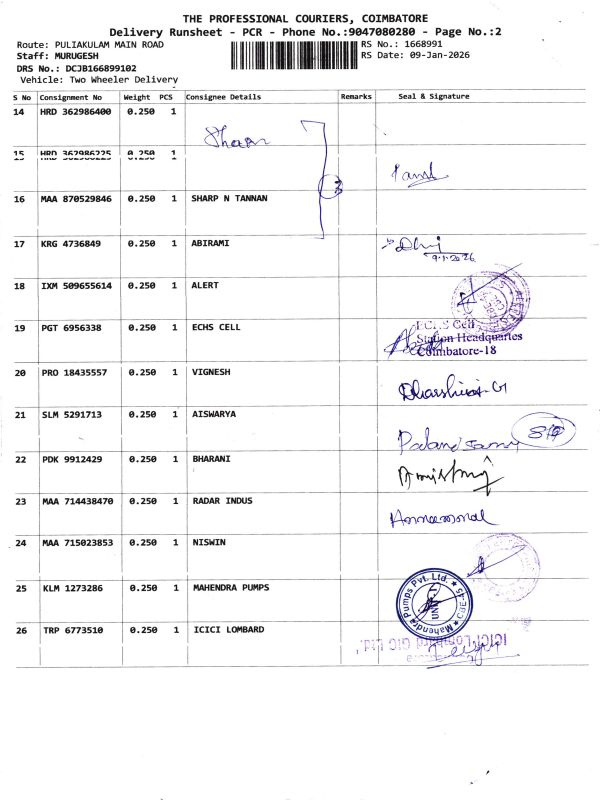 THE PROFESSIONAL COURIERS, COIMBATORE
Delivery Runsheet - PCR - Phone No.:9047080280 - Page No.:2
Route: PULIAKULAM MAIN ROAD
RS No.: 1668991
Staff: MURUGESH
RS Date: 09-Jan-2026
DRS No.: DCJB166899102
Vehicle: Two Wheeler Delivery
S No Consignment No Weight PCS Consignee Details Remarks Seal & Signature
14 HRD 362986400 0.250 1
15 HRD 362986225 0.250 1
16 MAA 870529846 0.250 1 SHARP N TANNAN
17 KRG 4736849 0.250 1 ABIRAMI
9.1.2026
18 IXM 509655614 0.250 1 ALERT
19 PGT 6956338 0.250 1 ECHS CELL
ECHS Cell
Station Headquartes
Coimbatore-18
20 PRO 18435557 0.250 1 VIGNESH
21 SLM 5291713 0.250 1 AISWARYA
22 PDK 9912429 0.250 1 BHARANI
23 MAA 714438470 0.250 1 RADAR INDUS
24 MAA 715023853 0.250 1 NISWIN
25 KLM 1273286 0.250 1 MAHENDRA PUMPS
Mahendra Pumps Pvt. Ltd.
26 TRP 6773510 0.250 1 ICICI LOMBARD
ICICI Lombard GIC Ltd.